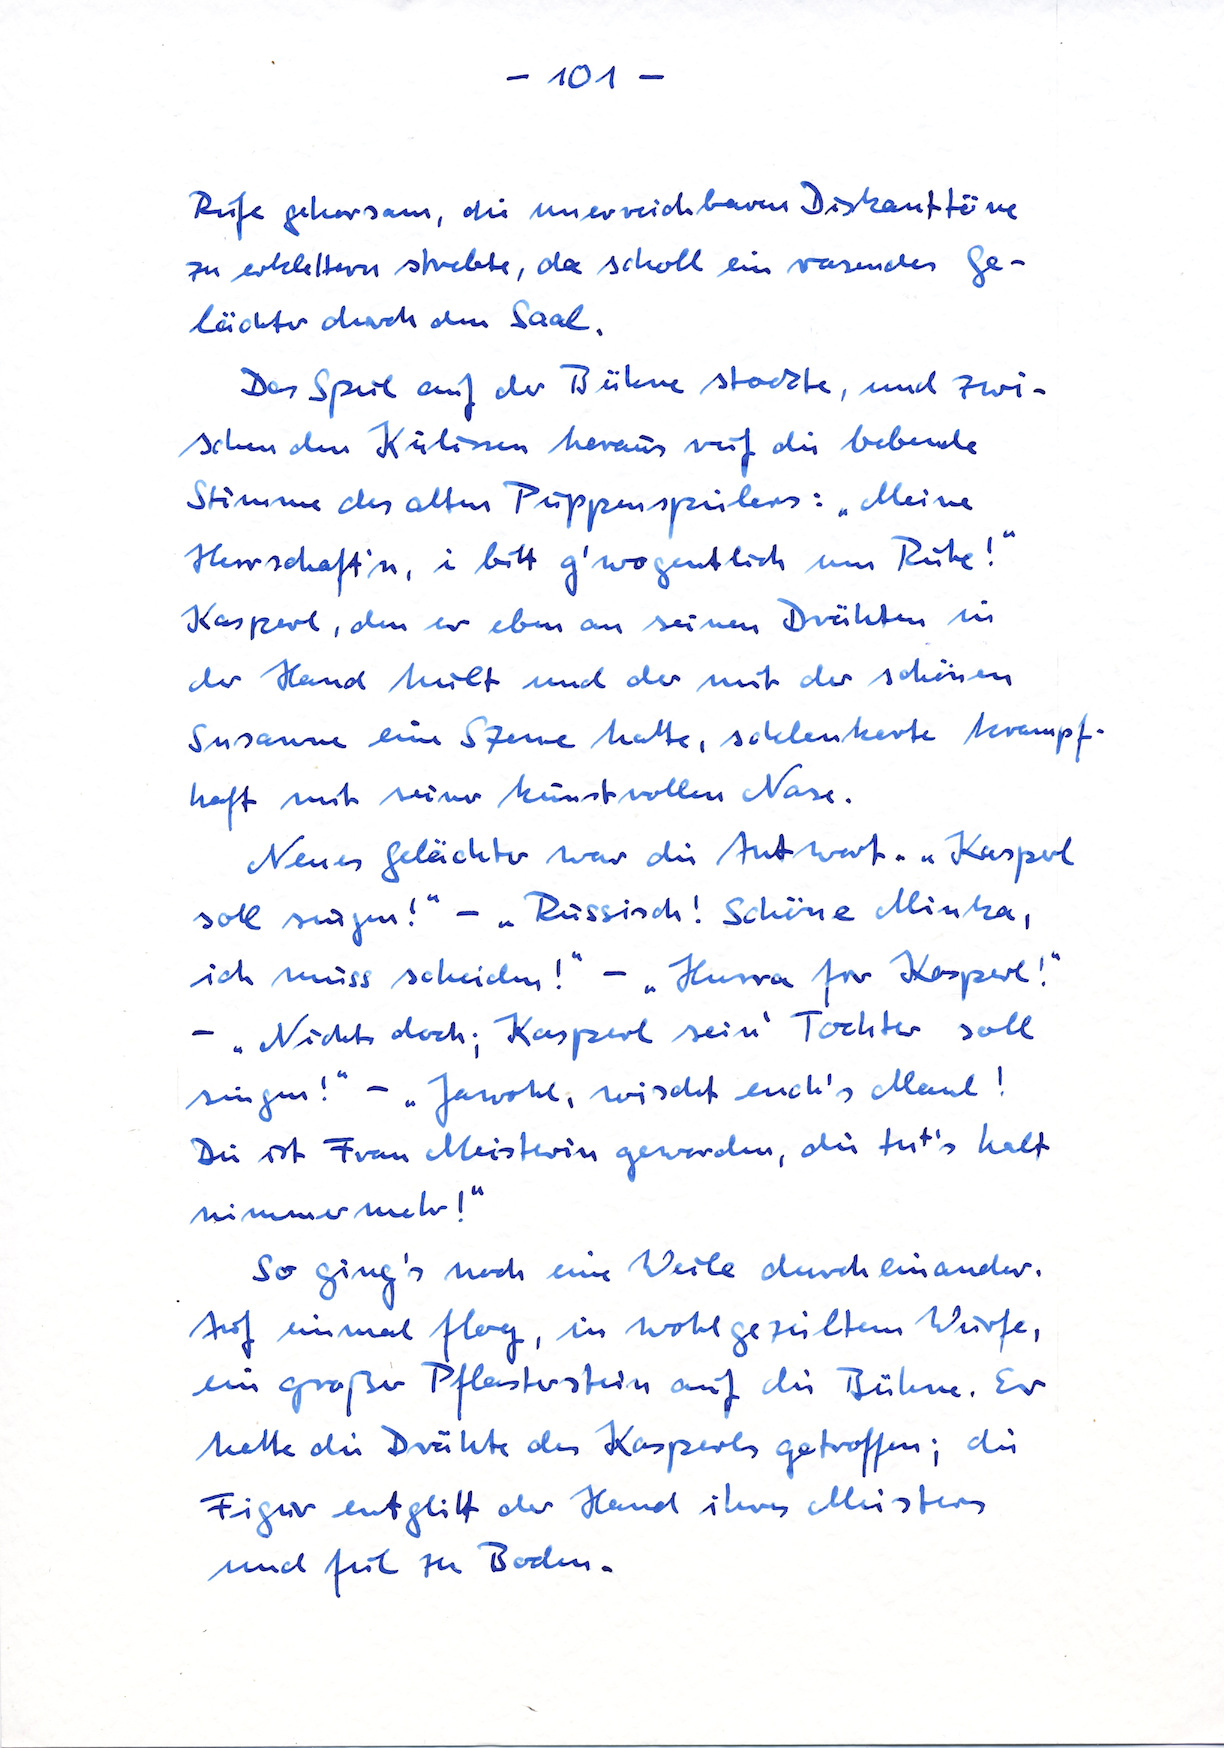 – 101 –
Rufe gehorsam, die unerreichbaren Diskanttöne
zu erklettern strebte, da scholl ein rasendes Ge-
lächter durch den Saal.
Das Spiel auf der Bühne stockte, und zwi-
schen den Kulissen heraus rief die bebende
Stimme des alten Puppenspielers: „Meine
Herrschaft'n, i bitt g'wogentlich um Ruhe!“
Kasperl, den er eben an seinen Drähten in
der Hand hielt und der mit der schönen
Susanne eine Szene hatte, schlenkerte krampf-
haft mit seiner kunstvollen Nase.
Neues Gelächter war die Antwort. „Kasperl
soll singen!“ – „Russisch! Schöne Minka,
ich muss scheiden!“ – „Hurra for Kasperl!“
– „Nichts doch; Kasperl sein' Tochter soll
singen!“ – „Jawohl, wischt euch's Maul!
Die ist Frau Meisterin geworden, die tut's halt
nimmermehr!“
So ging's noch eine Weile durcheinander.
Auf einmal flog, in wohlgezieltem Wurfe,
ein großer Pflasterstein auf die Bühne. Er
hatte die Drähte des Kasperls getroffen; die
Figur entglitt der Hand ihres Meisters
und fiel zu Boden.